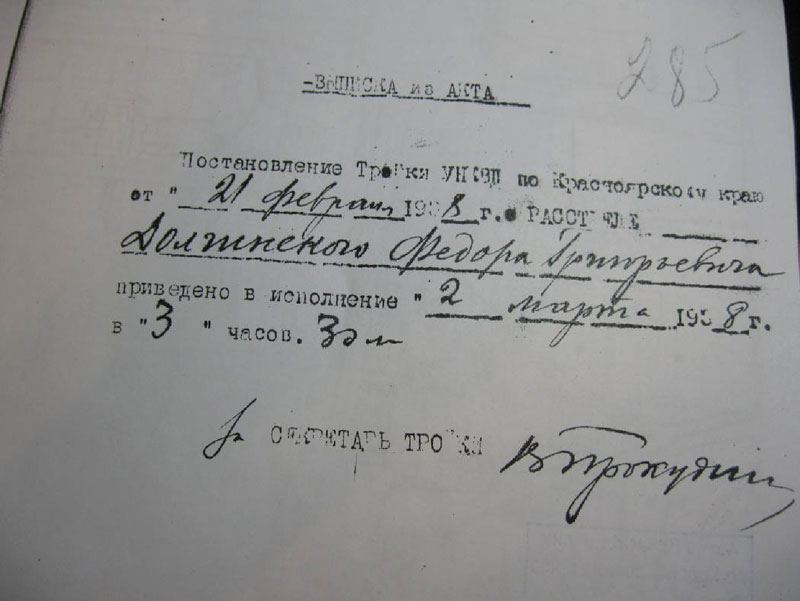 285
-ВЫПИСКА из АКТА
Постановление Тройки УНКВД по Красноярскому краю
от " 21 февраля 1938 г. о РАССТРЕЛЕ
Долгинского Федора Григорьевича
приведено в исполнение "2 марта 1938 г.
в "3 " часов. 30 м
СЕКРЕТАРЬ ТРОЙКИ ВПрокудин